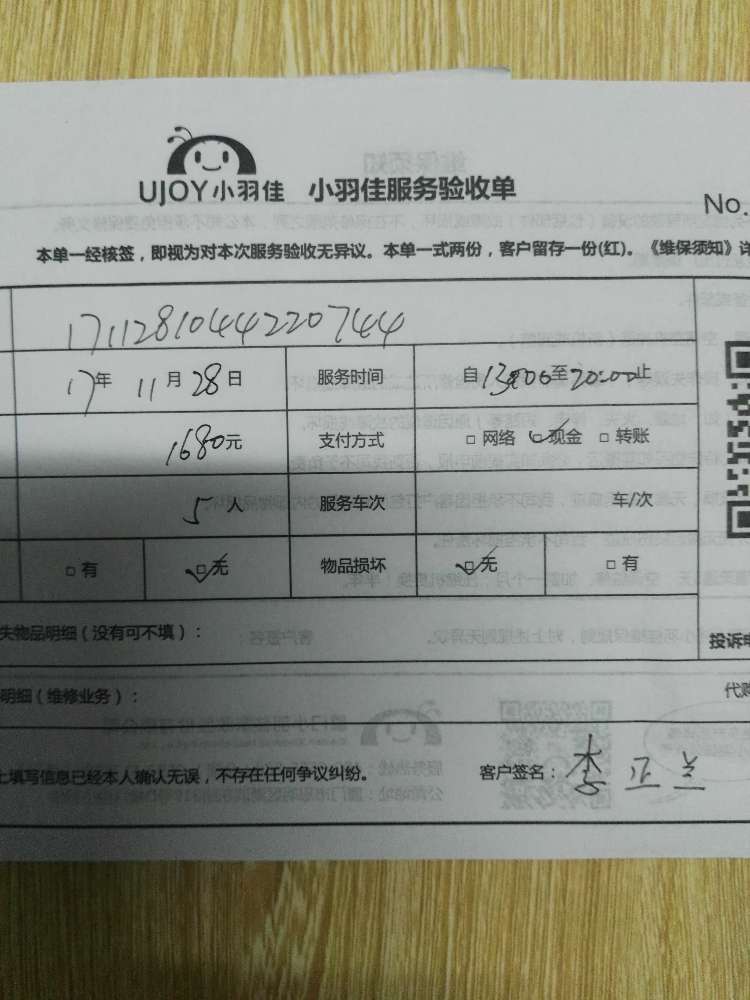 UJOY小羽佳 小羽佳服务验收单
No.
本单一经核签，即视为对本次服务验收无异议。本单一式两份，客户留存一份(红)。《维保须知》详
1711281044220744
17年 11月28日 服务时间 自13:00至20:00止
1680元 支付方式 □ 网络 ☑现金 □ 转账
5人 服务车次 车/次
□ 有 ☑无 物品损坏 ☑无 □ 有
失物品明细（没有可不填）：
投诉电
明细（维修业务）：
代购
上填写信息已经本人确认无误，不存在任何争议纠纷。 客户签名：李正兰